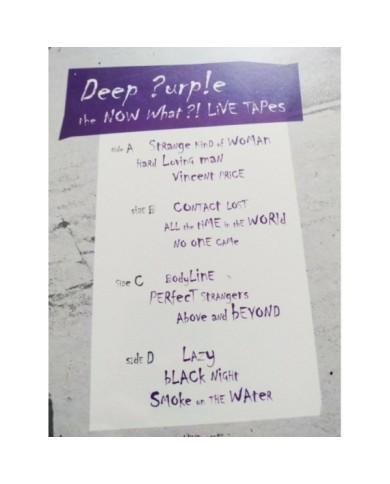 Deep ?urp!e
the NOW What ?! LiVE TAPes
side A Strange Kind of WOMAN
Hard Loving maN
Vincent PRICE
side B CONTACT LOST
ALL the tiME in the WORld
NO ONE CAME
Side C BodyLinE
PERfecT STRANgers
Above and bEYOND
side D LAzy
bLACK Night
Smoke on THE WAteR